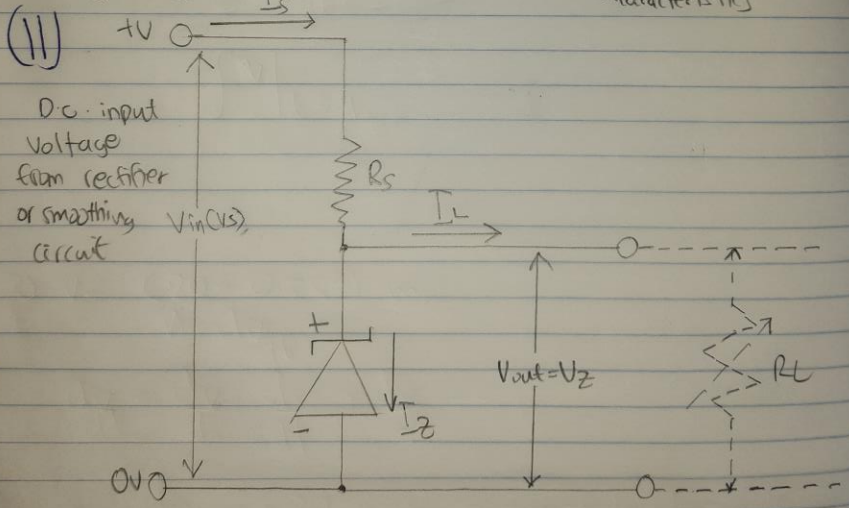 (11)
+V
Is
D.c. input
Voltage
from rectifier
or smoothing
circuit
Vin(Vs)
Rs
IL
+
-
IZ
Vout=VZ
RL
0V